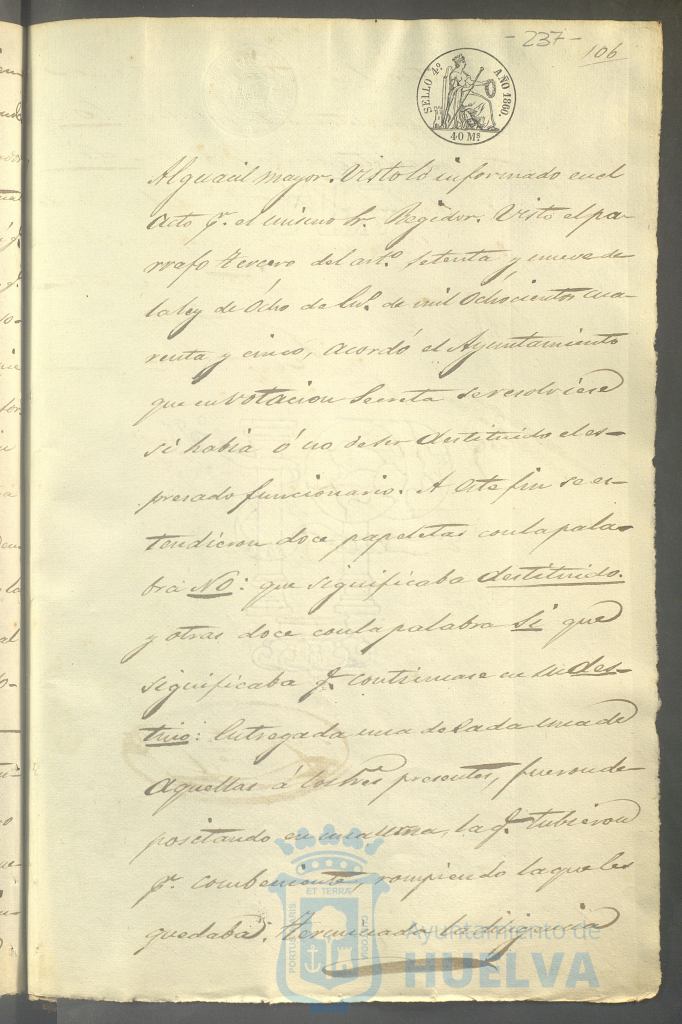 - 237 -
106
SELLO 4º AÑO 1860.
40 Ms
Alguacil mayor. Visto lo informado en el
Acto pr. el mismo Sr. Regidor. Visto el pa-
rrafo tercero del arto. setenta y nueve de
la ley de Ocho de En.o de mil Ochocientos cua-
renta y cinco, acordó el Ayuntamiento
que en votacion Secreta se resolviese
si habia ó no de ser destituido el es-
presado funcionario. A este fin se es-
tendieron doce papeletas con la pala-
bra NO: que significaba destituido.
y otras doce con la palabra Si que
significaba q. continuase en su des-
tino: Entregada una de cada una de
aquellas á los Sres presentes, fueron de
positando en una urna, la q. tubieron
pr. combeniente, rompiendo la que les
quedaba. Terminada la diligencia
PORTUS MARIS ET TERRAE CUSTODIA
Ayuntamiento de
HUELVA